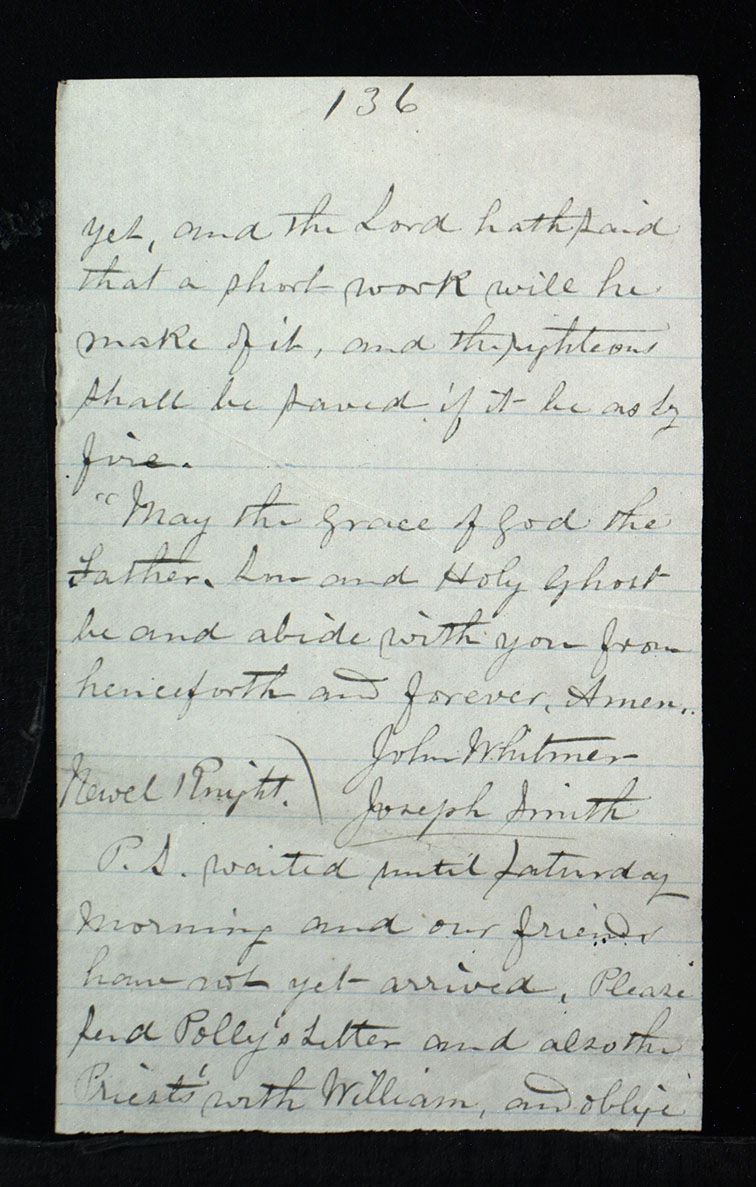 136
yet, and the Lord hath said
that a short work will he
make of it, and the righteous
shall be saved if it be as by
fire.
"May the grace of God the
Father, Son and Holy Ghost
be and abide with you from
henceforth and forever, Amen.
John Whitmer
Newel Knight. ) Joseph Smith
P. S. waited until Saturday
morning and our friends
have not yet arrived, Please
send Polly's Letter and also the
Priest's with William, and oblige